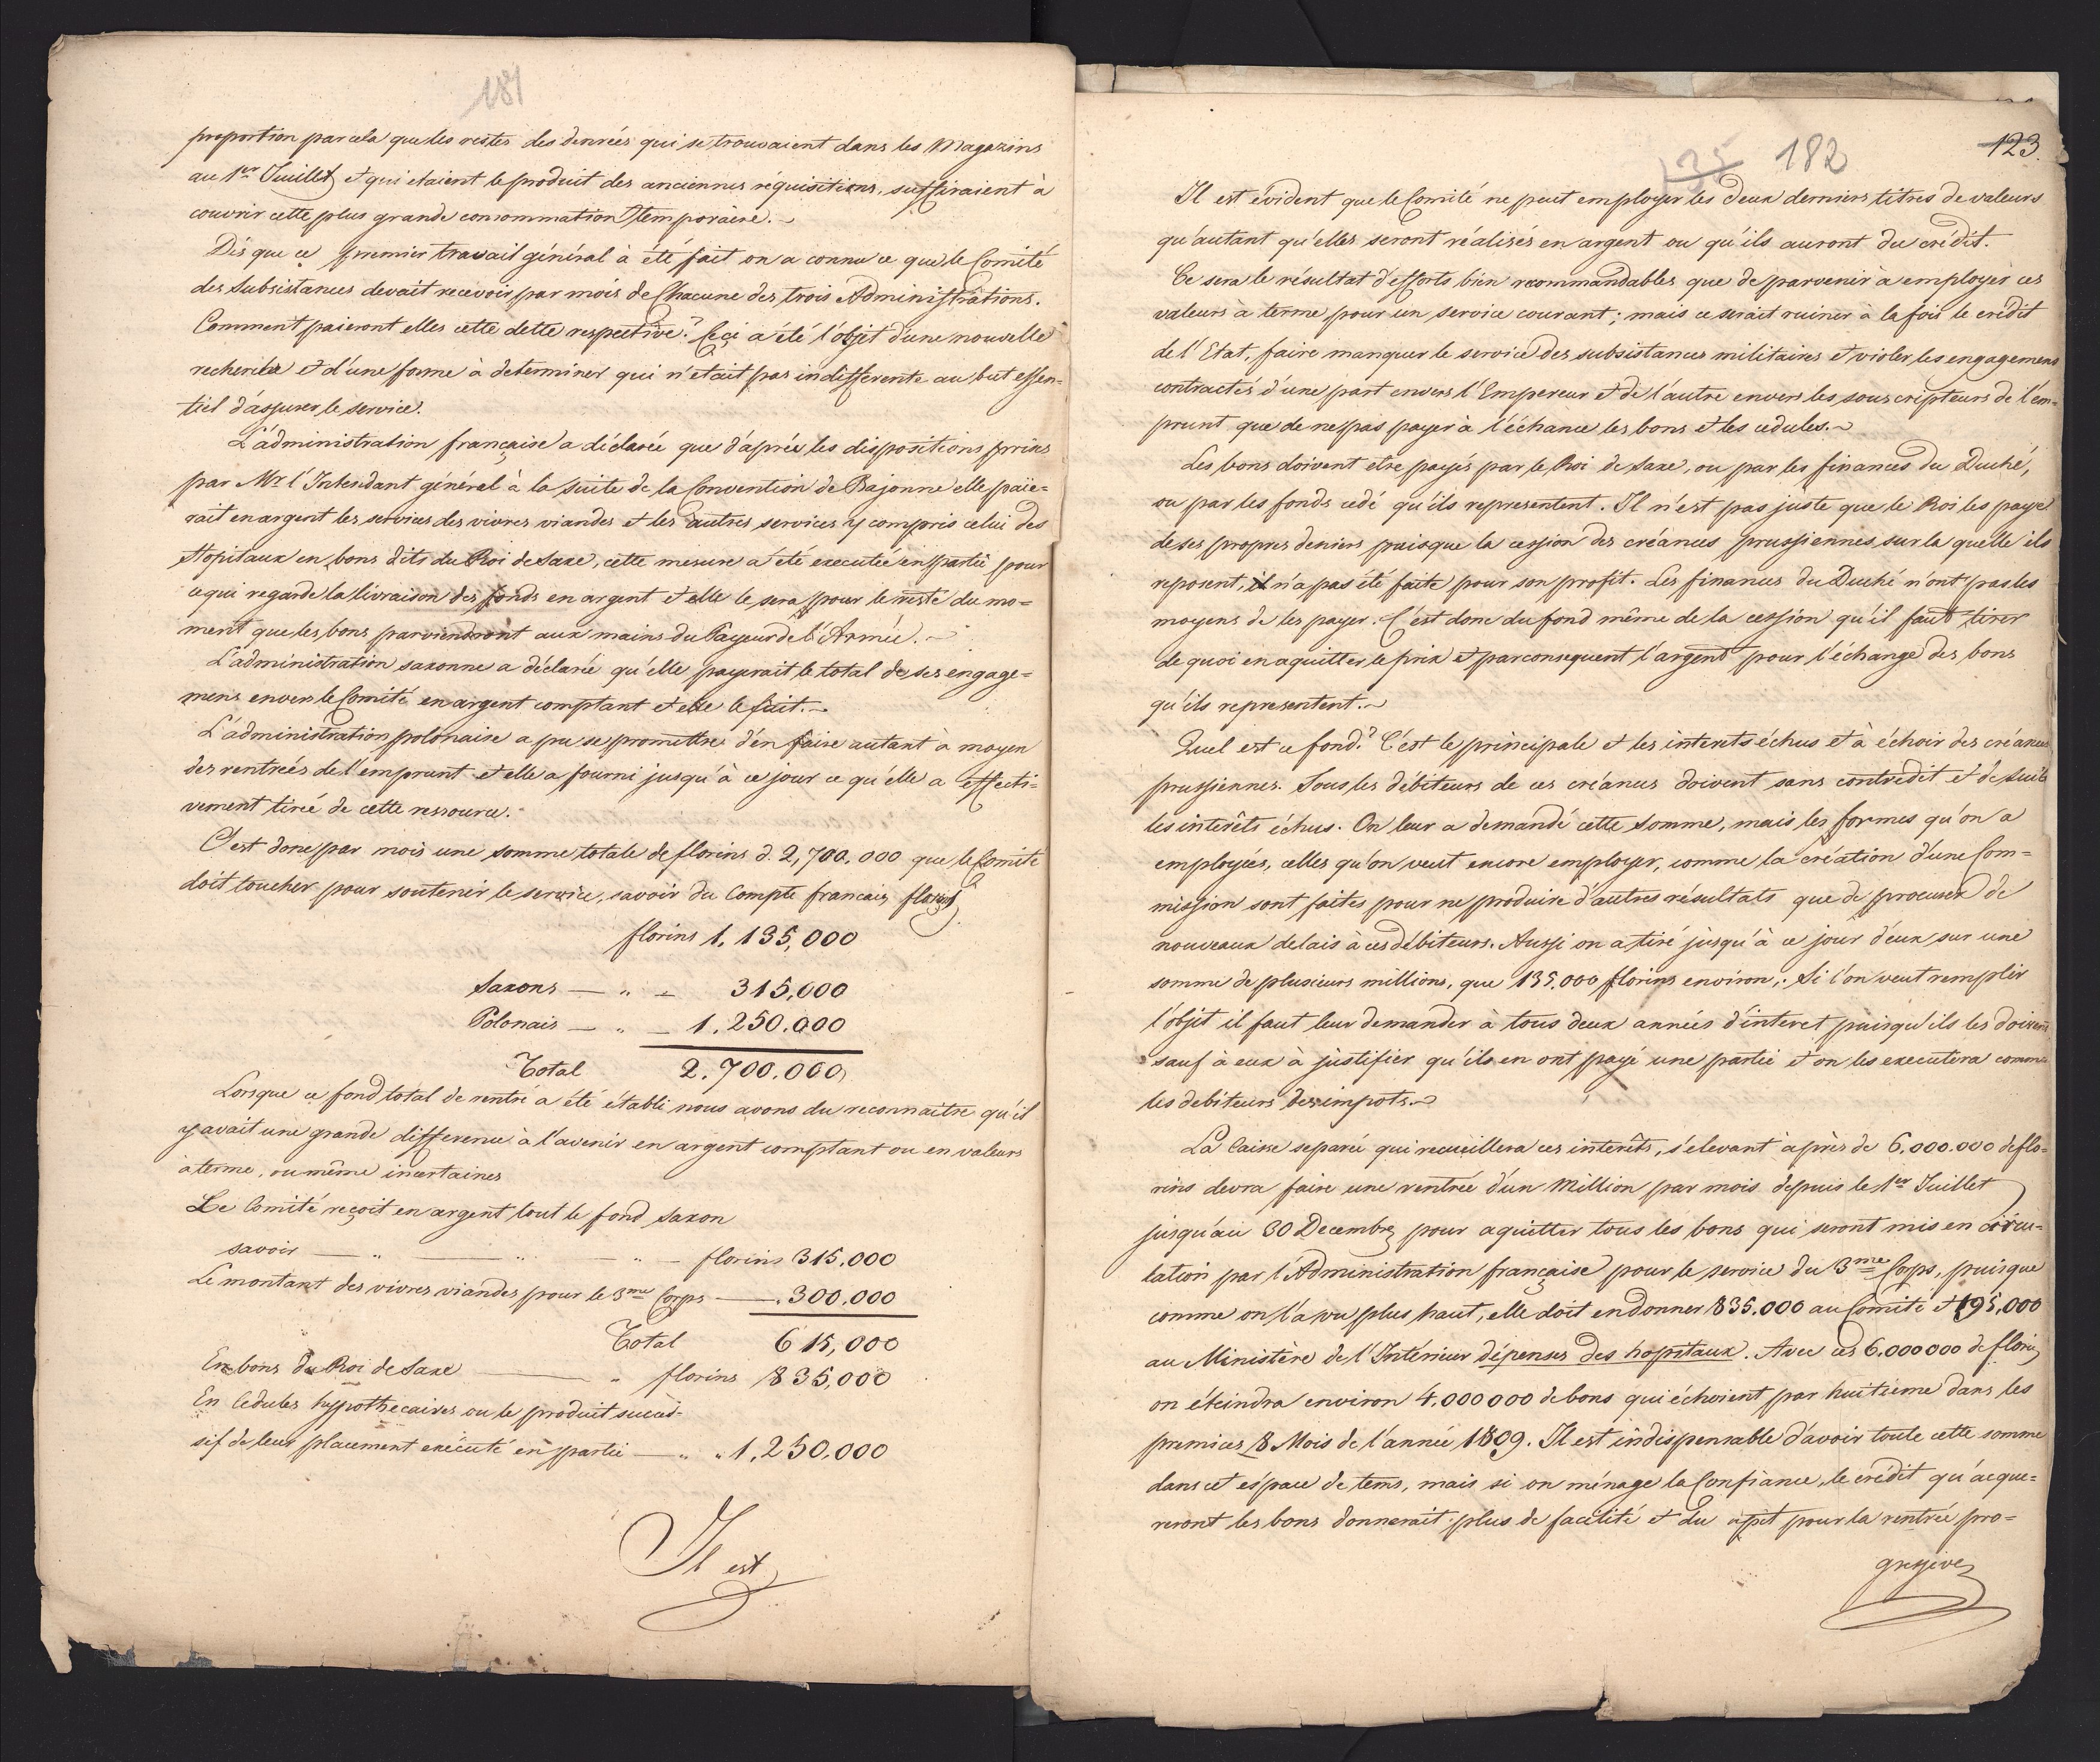 181
proportion par cela que les restes des denrées qui se trouvaient dans les Magazins
au 1er Juillet et qui etaient le produit des anciennes réquisitions, suffiraient à
couvrir cette plus grande consommation temporaire.
Dès que ce premier travail général à été fait on a connu ce que le Comité
des Subsistances devait recevoir par mois de Chacune des trois Administrations.
Comment paieront elles cette dette respective? Ceci a été l'objet d'une nouvelle
recherche et d'une forme à determiner qui n'etait pas indifferente au but essen=
tiel d'assurer le service.
L'administration française a déclarée que d'après les dispositions prises
par Mr l'Intendant général à la suite de la Convention de Bajonne elle paie=
rait en argent les services des vivres viandes et les autres services y compris celui des
Hopitaux en bons dits du Roi de Saxe, cette mesure a été executée en partie pour
ce qui regarde la livraison des fonds en argent et elle le sera pour le reste du mo=
ment que les bons parviendront aux mains du Payeur de l'Armée.
L'administration saxonne a déclarée qu'elle payerait le total de ses engage=
mens envers le Comité en argent comptant et elle le fait.
L'administration polonaise a pu se promettre d'en faire autant à moyen
des rentrées de l'emprunt et elle a fourni jusqu'à ce jour ce qu'elle a effecti=
vement tirée de cette ressource.
C'est donc par mois une somme totale de florins d. 2,700.000 que le Comité
doit toucher pour soutenir le service, savoir du Compte francais florins
florins 1.135,000
Saxons — " — 315,000
Polonais — " — 1.250.000
Total 2.700.000
Lorsque ce fond total de rentré a été établi nous avons du reconnaitre qu'il
y avait une grande difference à l'avenir en argent comptant ou en valeurs
à terme, ou même incertaines
Le Comité reçoit en argent tout le fond Saxon
savoir — " — " — " — florins 315.000
Le montant des vivres viandes pour le 3me Corps — . 300.000
Total 615,000
En bons du Roi de Saxe — " florins 835,000
En Cedules hypothécaires ou le produit succes-
sif de leur placement exécuté en partie — " " 1,250,000
Il est
125 182 123.
Il est évident que le Comité ne peut employer les deux derniers titres de valeurs
qu'autant qu'elles seront réalisés en argent ou qu'ils auront du crédit.
Ce sera le résultat d'efforts bien recommandables que de parvenir à employer ces
valeurs à terme pour un service courant; mais ce serait ruiner à la fois le crédit
de l'Etat, faire manquer le service des subsistances militaires et violer les engagemens
contractés d'une part envers l'Empereur et de l'autre envers les souscripteurs de l'em=
prunt que de ne pas payer à l'échance les bons et les cedules.
Les bons doivent etre payés par le Roi de Saxe, ou par les finances du Duché,
ou par les fonds cedé qu'ils representent. Il n'est pas juste que le Roi les paye
de ses propres deniers puisque la cession des créances prussiennes sur la quelle ils
reposent, il n'a pas été faite pour son profit. Les finances du Duché n'ont pas les
moyens de les payer. C'est donc du fond même de la cession qu'il faut tirer
de quoi en aquitter le prix et par consequent l'argent pour l'échange des bons
qu'ils representent.
Quel est ce fond? C'est le principale et les interets échus et à échoir des créances
prussiennes. Tous les débiteurs de ces créances doivent sans contredit et de suite
les interêts échus. On leur a demandé cette somme, mais les formes qu'on a
employées, celles qu'on veut encore employer, comme la création d'une Com=
mission sont faites pour ne produire d'autres résultats que de procurer de
nouveaux delais à ces débiteurs. Aussi on a tiré jusqu'à ce jour d'eux sur une
somme de plusieurs millions, que 135.000 florins environ; Si l'on veut remplir
l'objet il faut leur demander à tous deux années d'interet puisqu'ils les doivent
sauf à eux à justifier qu'ils en ont payé une partie et on les executera comme
les debiteurs des impots.
La Caisse separée qui recueillera ces interêts, s'elevant à près de 6.000.000 de flo=
rins devra faire une rentrée d'un Million par mois depuis le 1er Juillet
jusqu'au 30 Decembre pour aquitter tous les bons qui seront mis en circu=
lation par l'Administration française pour le service du 3me Corps, puisque
comme on l'a vu plus haut, elle doit en donner 835.000 au Comité et 195,000
au Ministère de l'Intérieur dépenses des hopitaux. Avec ces 6.000000 de florins
on éteindra environ 4.000000 de bons qui échoient par huitieme dans les
premices 8 Mois de l'année 1809. Il est indispensable d'avoir toute cette somme
dans cet espace de tems, mais si on ménage la Confiance, le crédit qu'acque=
reront les bons donnerait plus de facilité et du repit pour la rentrée pro=
gressive